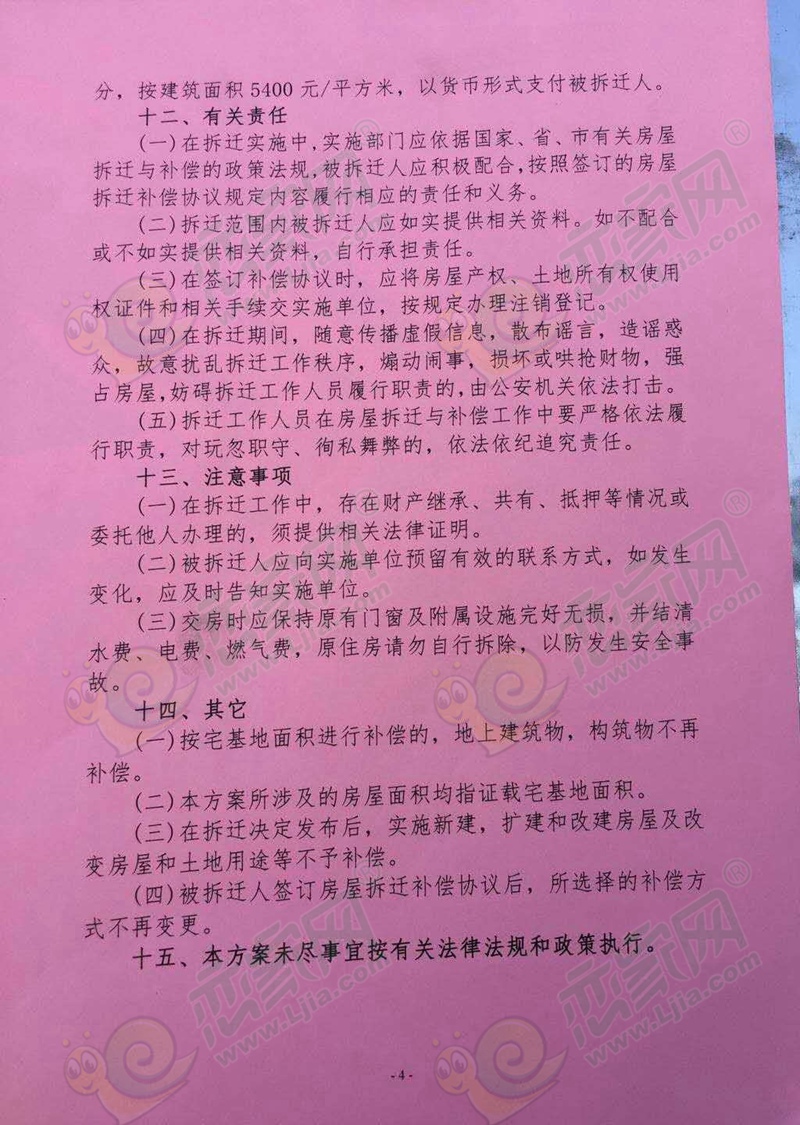 分，按建筑面积 5400 元/平方米，以货币形式支付被拆迁人。
十二、有关责任
(一)在拆迁实施中,实施部门应依据国家、省、市有关房屋
拆迁与补偿的政策法规,被拆迁人应积极配合,按照签订的房屋
拆迁补偿协议规定内容履行相应的责任和义务。
(二)拆迁范围内被拆迁人应如实提供相关资料。如不配合
或不如实提供相关资料，自行承担责任。
(三)在签订补偿协议时，应将房屋产权、土地所有权使用
权证件和相关手续交实施单位，按规定办理注销登记。
(四)在拆迁期间，随意传播虚假信息，散布谣言，造谣惑
众，故意扰乱拆迁工作秩序，煽动闹事，损坏或哄抢财物，强
占房屋,妨碍拆迁工作人员履行职责的,由公安机关依法打击。
(五)拆迁工作人员在房屋拆迁与补偿工作中要严格依法履
行职责，对玩忽职守、徇私舞弊的，依法依纪追究责任。
十三、注意事项
(一)在拆迁工作中，存在财产继承、共有、抵押等情况或
委托他人办理的，须提供相关法律证明。
(二)被拆迁人应向实施单位预留有效的联系方式，如发生
变化，应及时告知实施单位。
(三)交房时应保持原有门窗及附属设施完好无损，并结清
水费、电费、燃气费，原住房请勿自行拆除，以防发生安全事
故。
十四、其它
(一)按宅基地面积进行补偿的，地上建筑物，构筑物不再
补偿。
(二)本方案所涉及的房屋面积均指证载宅基地面积。
(三)在拆迁决定发布后，实施新建，扩建和改建房屋及改
变房屋和土地用途等不予补偿。
(四)被拆迁人签订房屋拆迁补偿协议后，所选择的补偿方
式不再变更。
十五、本方案未尽事宜按有关法律法规和政策执行。
- 4 -
恋家网®
www.Ljia.com